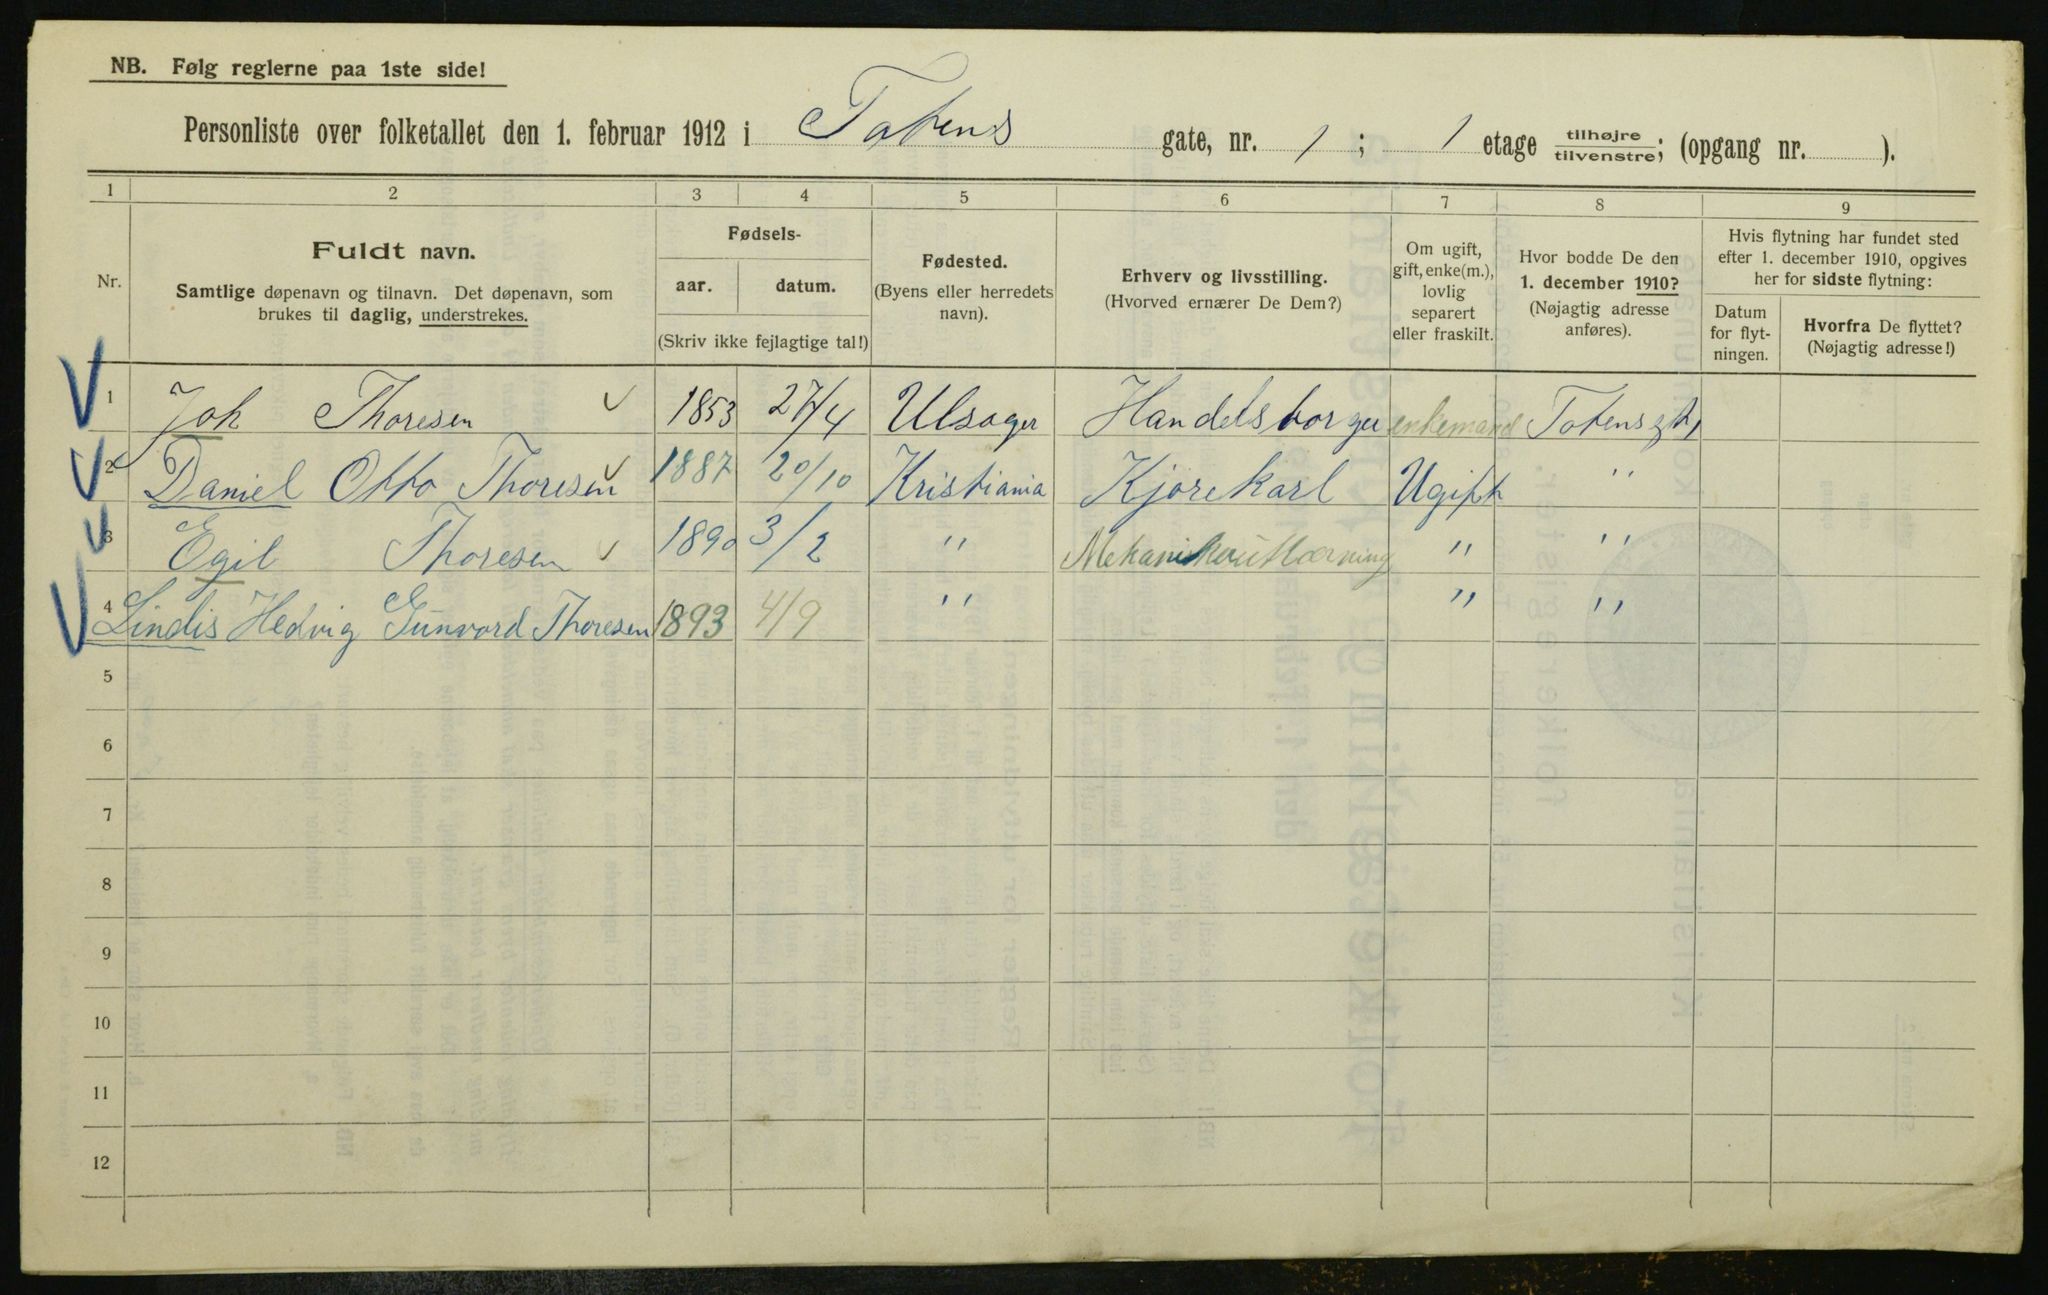 NB. Følg reglerne paa 1ste side!
Personliste over folketallet den 1. februar 1912 i Totens gate, nr. 1; 1 etage tilhøjre/tilvenstre; (opgang nr. ).
1 2 3 4 5 6 7 8 9
Nr.
Fuldt navn.
Samtlige døpenavn og tilnavn. Det døpenavn, som
brukes til daglig, understrekes.
Fødsels-
aar. datum.
(Skriv ikke fejlagtige tal!)
Fødested.
(Byens eller herredets
navn).
Erhverv og livsstilling.
(Hvorved ernærer De Dem?)
Om ugift,
gift, enke(m.),
lovlig
separert
eller fraskilt.
Hvor bodde De den
1. december 1910?
(Nøjagtig adresse
anføres).
Hvis flytning har fundet sted
efter 1. december 1910, opgives
her for sidste flytning:
Datum
for flyt-
ningen.
Hvorfra De flyttet?
(Nøjagtig adresse!)
1 Joh Thoresen 1853 27/4 Ulsager Handelsborger enkemand Totensgt 1
2 Daniel Otto Thoresen 1887 20/10 Kristiania Kjørekarl Ugift "
3 Egil Thoresen 1890 3/2 " " "
4 Lindis Hedvig Gunvord Thoresen 1893 4/9 " " "
5
6
7
8
9
10
11
12